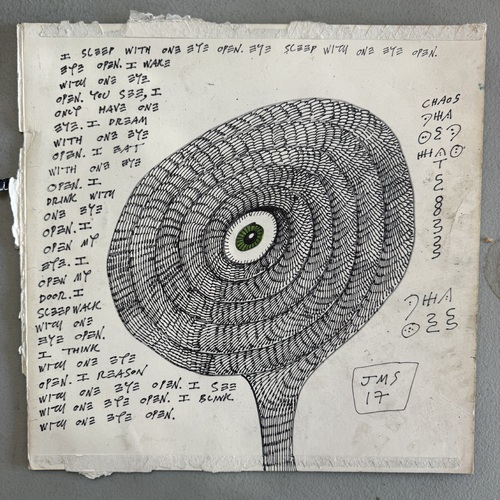 I SLEEP WITH ONE EYE OPEN. EYE SLEEP WITH ONE EYE OPEN.
EYE OPEN. I WAKE
WITH ONE EYE
OPEN. YOU SEE, I
ONLY HAVE ONE
EYE. I DREAM
WITH ONE EYE
OPEN. I EAT
WITH ONE EYE
OPEN. I
DRINK WITH
ONE EYE
OPEN. I
OPEN MY
EYE. I
OPEN MY
DOOR. I
SLEEPWALK
WITH ONE
EYE OPEN.
I THINK
WITH ONE EYE
OPEN. I REASON
WITH ONE EYE OPEN. I SEE
WITH ONE EYE OPEN. I BLINK
WITH ONE EYE OPEN.
CHAOS
JMS
17